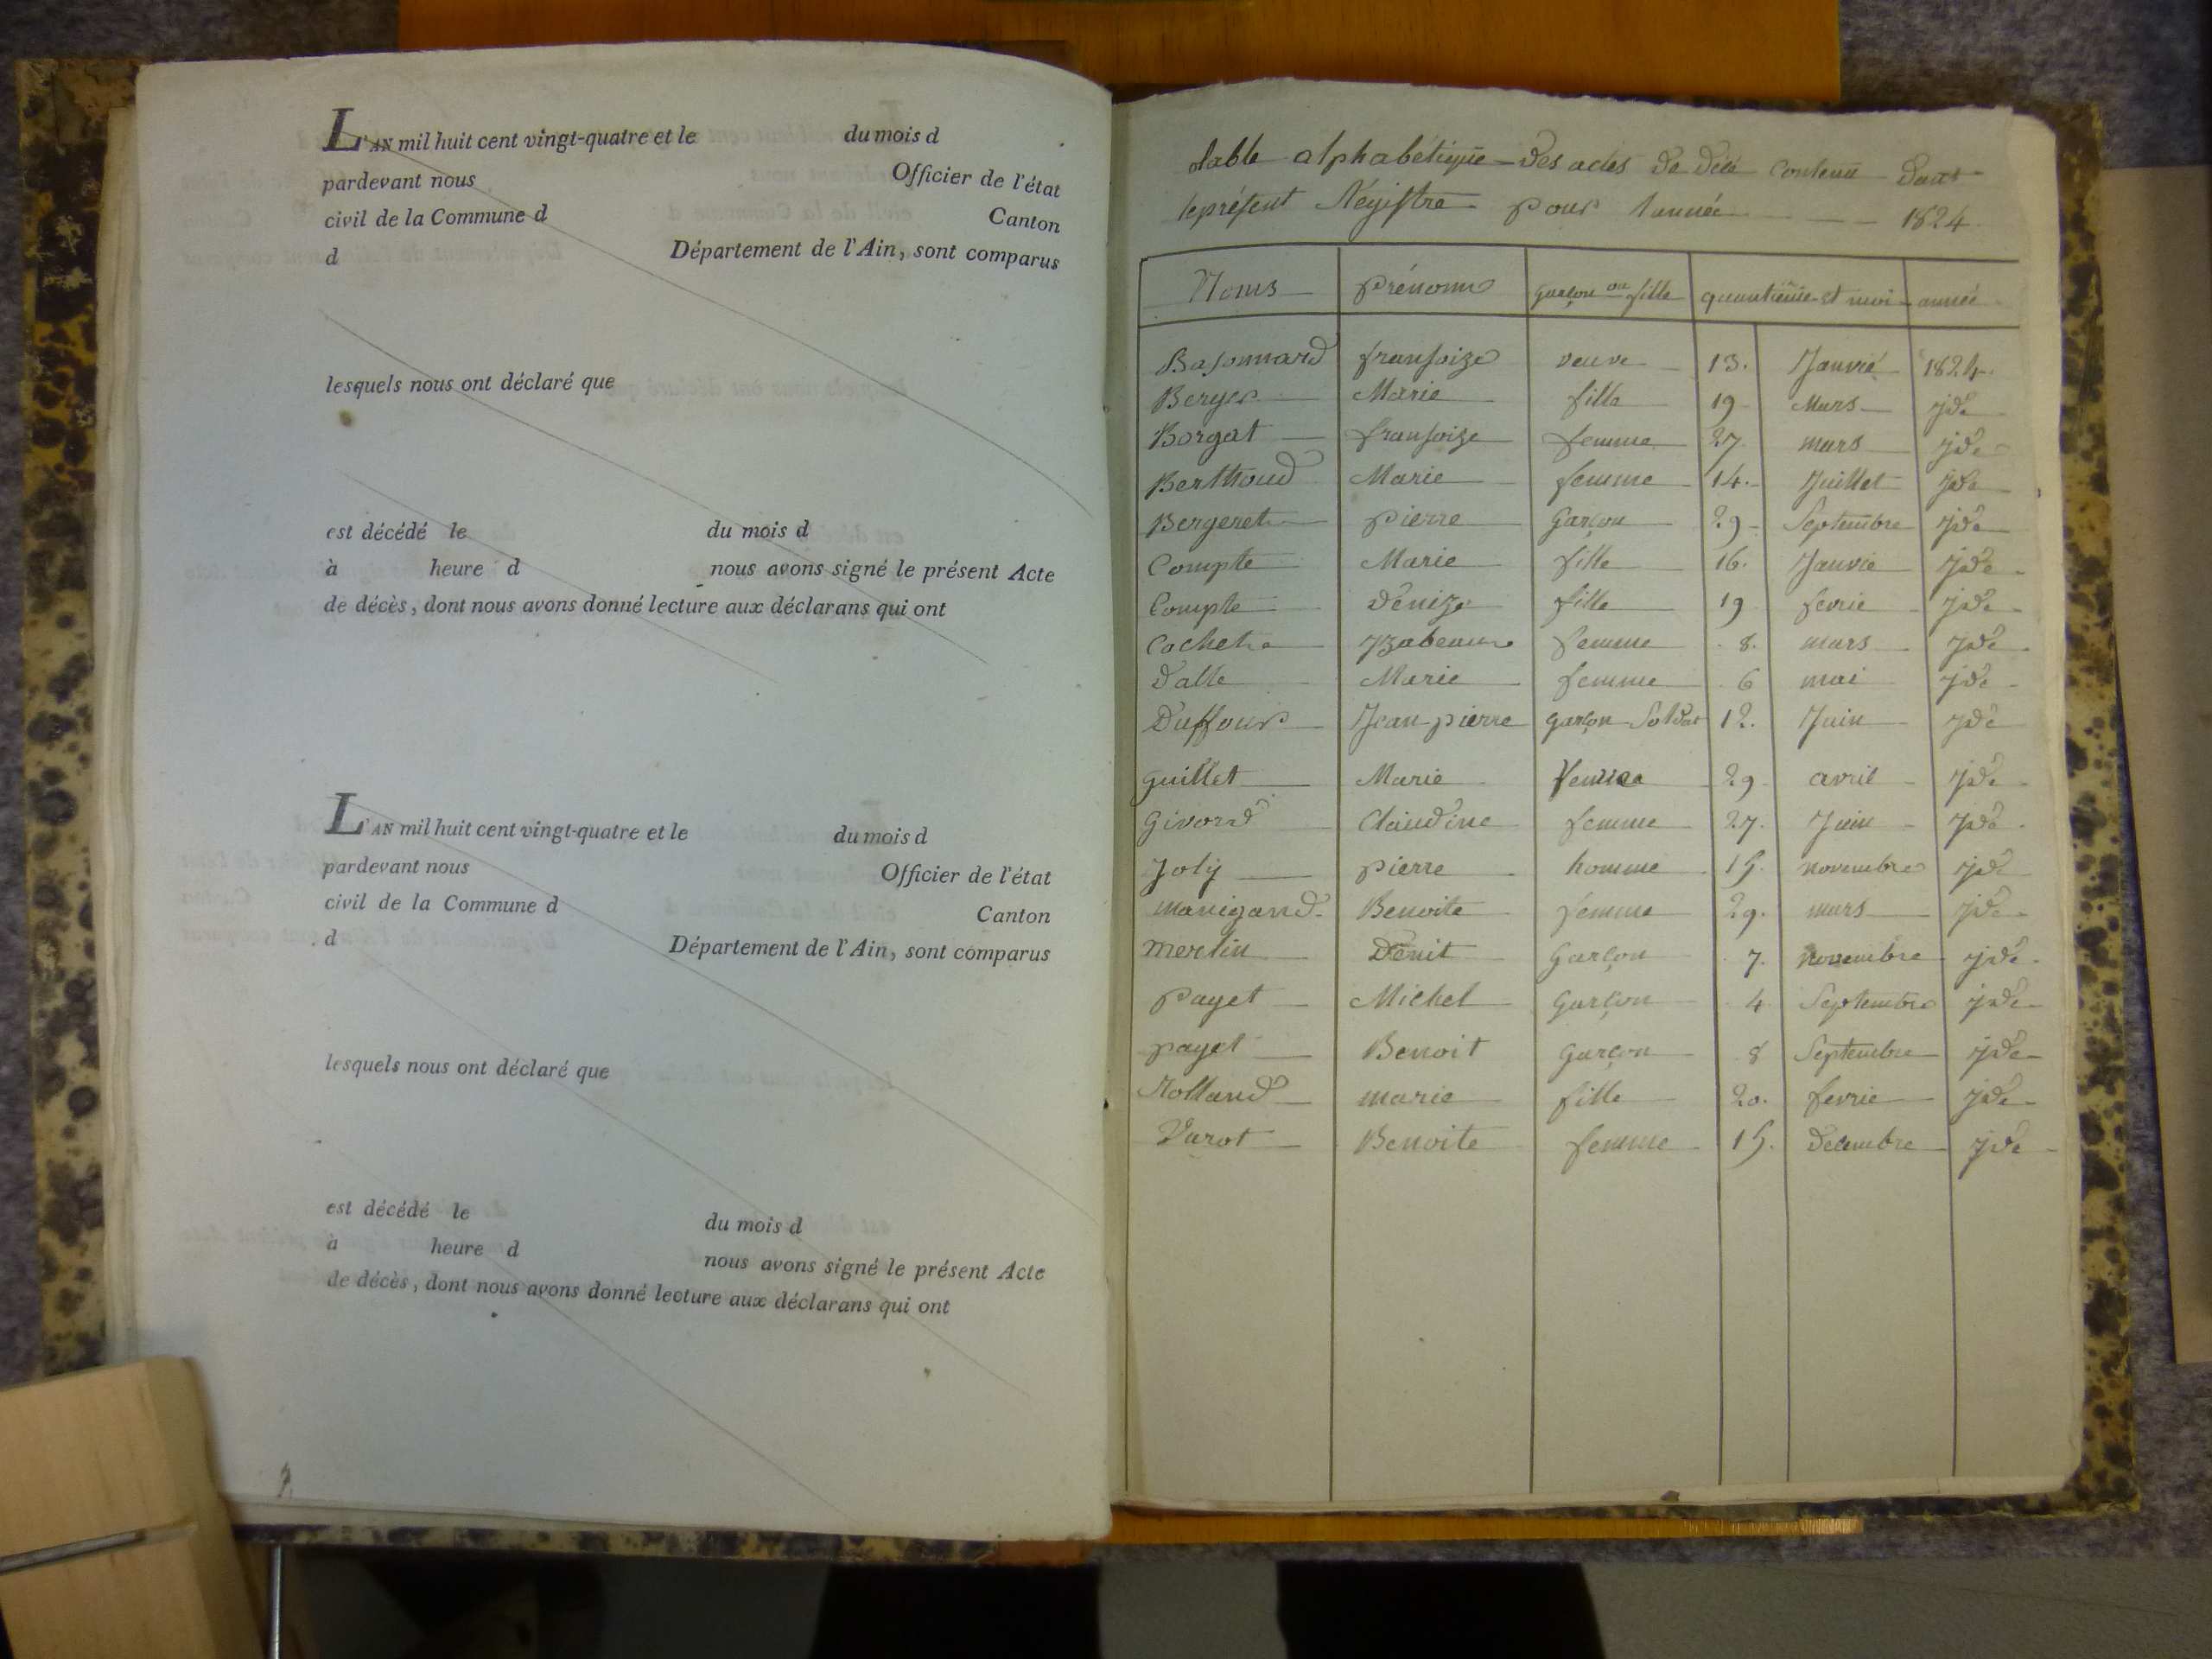 L'AN mil huit cent vingt-quatre et le du mois d
pardevant nous Officier de l'état
civil de la Commune d Canton
d Département de l'Ain, sont comparus
lesquels nous ont déclaré que
est décédé le du mois d
à heure d nous avons signé le présent Acte
de décès, dont nous avons donné lecture aux déclarans qui ont
L'AN mil huit cent vingt-quatre et le du mois d
pardevant nous Officier de l'état
civil de la Commune d Canton
d Département de l'Ain, sont comparus
lesquels nous ont déclaré que
est décédé le du mois d
à heure d nous avons signé le présent Acte
de décès, dont nous avons donné lecture aux déclarans qui ont
table alphabétique des actes de décé contenu dans
le présent Régistre pour l'année 1824
Noms prénoms garçon ou fille quantième et moi année
Basonnard fransoize veuve 13. Janvié 1824.
Berger Marie fille 19 Mars jde
Borgat fransoize femme 27. mars jde
Berthoud Marie femme 14. Juillet jde
Bergeret Pierre Garçon 29 Septembre jde
Compte Marie fille 16. Janvié jde
Compte Denize fille 19 fevrié jde
Cochet femme 8. mars jde
Dalle Marie femme 6 mai jde
Duffour Jean pierre garçon Soldat 12. Juin jde
guillet Marie 29 avril jde
Givord Claudine femme 27. Juin jde
Joly pierre homme 15. novembre jde
manigand Benoite femme 29. mars jde
merlin Denit Garçon 7. novembre jde
payet Michel Garçon 4 Septembre jde
payet Benoit Garçon 8 Septembre jde
Rolland marie fille 20. fevrie jde
Varot Benoite femme 15. Decembre jde